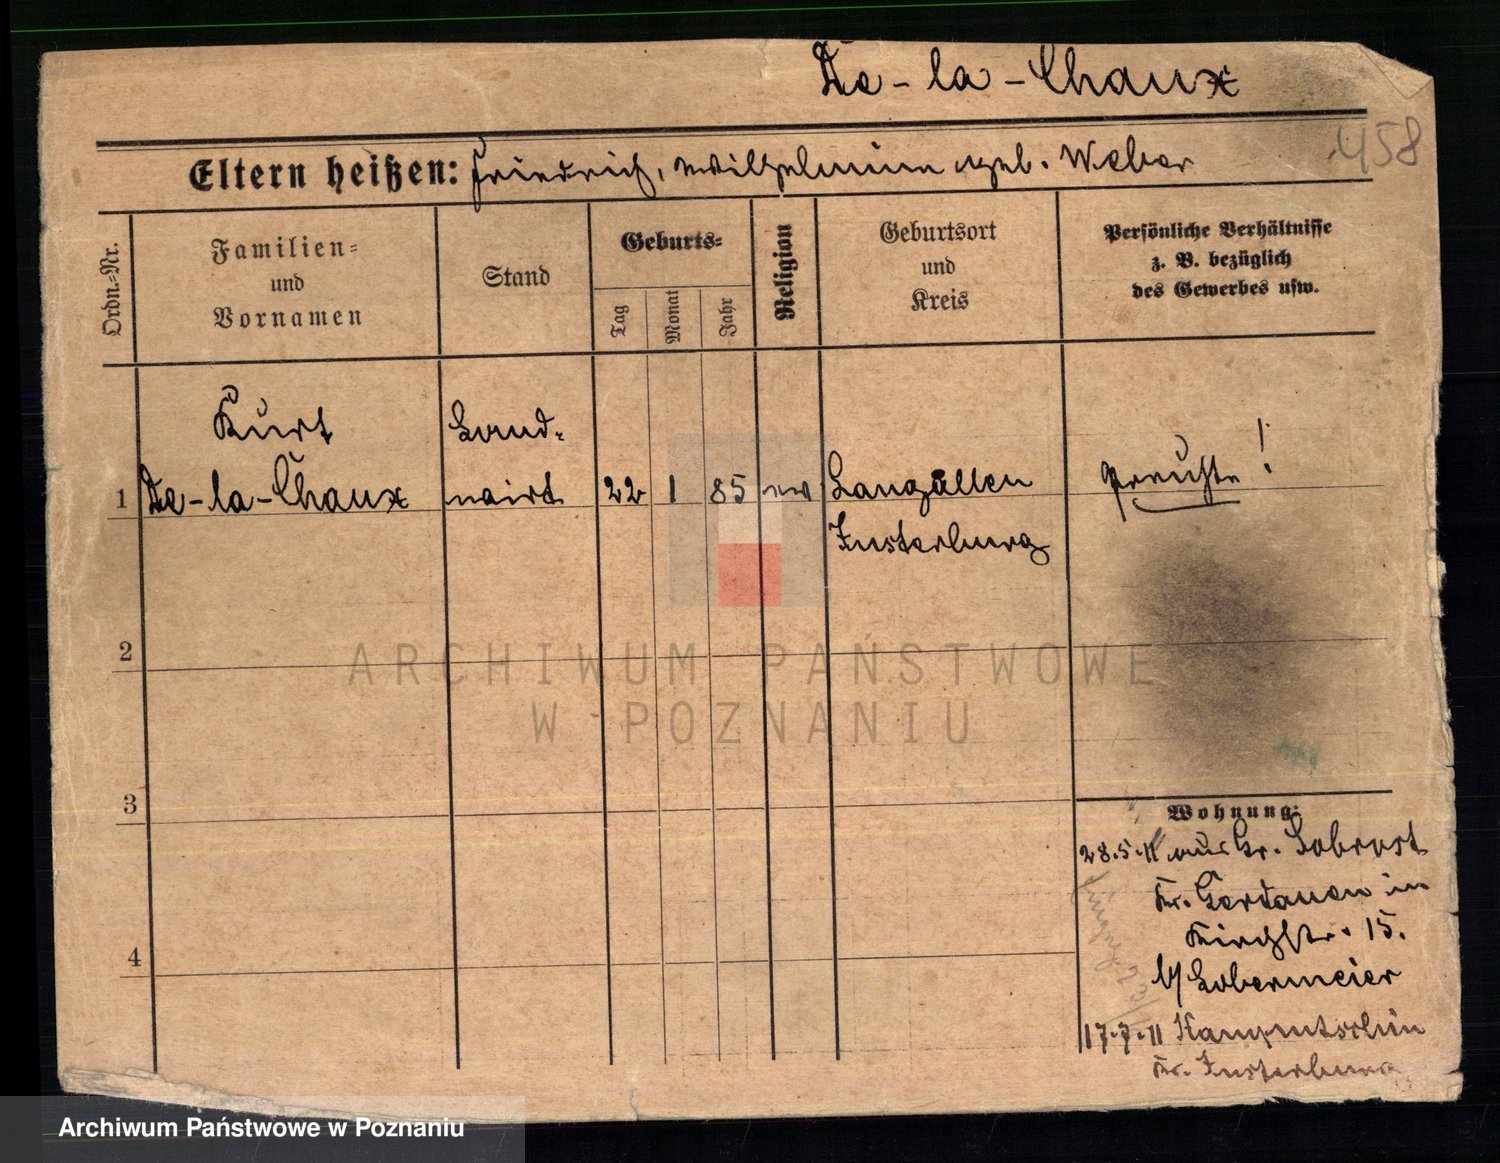 De-la-Chaux
458
Eltern heißen: Friedrich, Wilhelmine geb. Weber
Ordn.=Nr.
Familien=
und
Vornamen
Stand
Geburts=
Tag
Monat
Jahr
Religion
Geburtsort
und
Kreis
Persönliche Verhältnisse
z. B. bezüglich
des Gewerbes usw.
Kurt
Land-
1 De-la-Chaux wirt 22 1 85 ev Langallen Preuße!
Insterburg
2
3
4
Wohnung:
28.5.11 aus Gr.
Kr. Gerdauen in
Kirchstr. 15.
b/ Lobermeier
17.7.11
Kr. Insterburg
ARCHIWUM PAŃSTWOWE
W POZNANIU
Archiwum Państwowe w Poznaniu